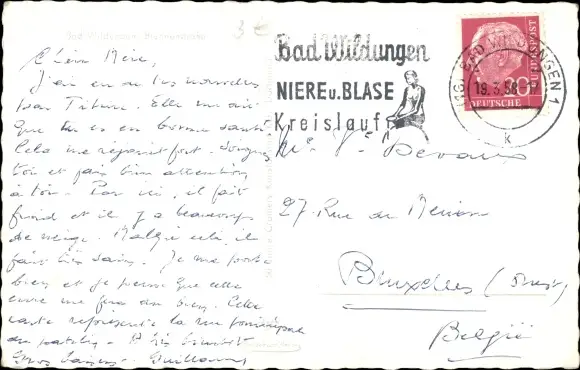 Bad Wildungen, Brunnenstraße
3€
Chère Mère,
J'ai eu de tes nouvelles
par Titine. Elle m'a dit
que tu es en bonne santé
Cela me réjouit fort. Songes
toi et fais bien attention
à toi. Par ici, il fait
froid et il y a beaucoup
de neige. Malgré cela, il
fait très sain. Je me porte
bien et je pense que cette
cure me fera du bien. Cette
carte représente la rue principale
du patelin. A très bientôt
Gros baisers. Guillaume
Bad Wildungen
NIERE u. BLASE
Kreislauf
(16) BAD WILDUNGEN 1
19.3.58
k
20
DEUTSCHE
BUNDESPOST
Me Ve Devaux
27. Rue du
Bruxelles (
Belgïe